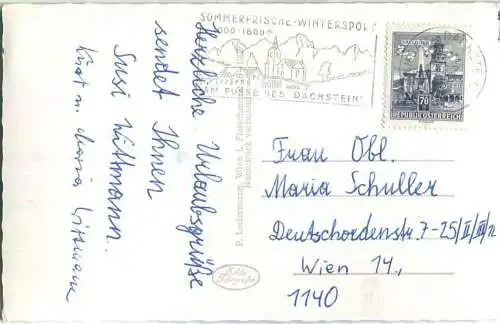 SOMMERFRISCHE-WINTERSPORT
1000-1800m
AM FUSSE DES DACHSTEIN
70
REPUBLIK ÖSTERREICH
Herzliche Urlaubsgrüße
sendet Ihnen
Susi Wittmann.
Kurt u. Maria Wittmann
P. Ledermann, Wien I,
Frau Obl.
Maria Schuller
Deutschordenstr. 7-25/II/III/12
Wien 14.,
1140